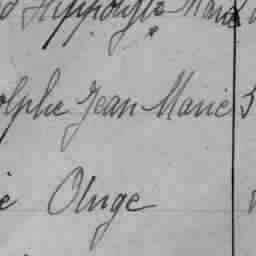 Hippolyte Marie
olphe Jean Marie 5
e Ange